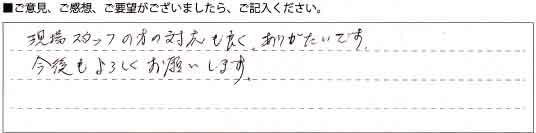 ■ご意見、ご感想、ご要望がございましたら、ご記入ください。
現場スタッフの方の対応も良く、ありがたいです。
今後もよろしくお願いします。